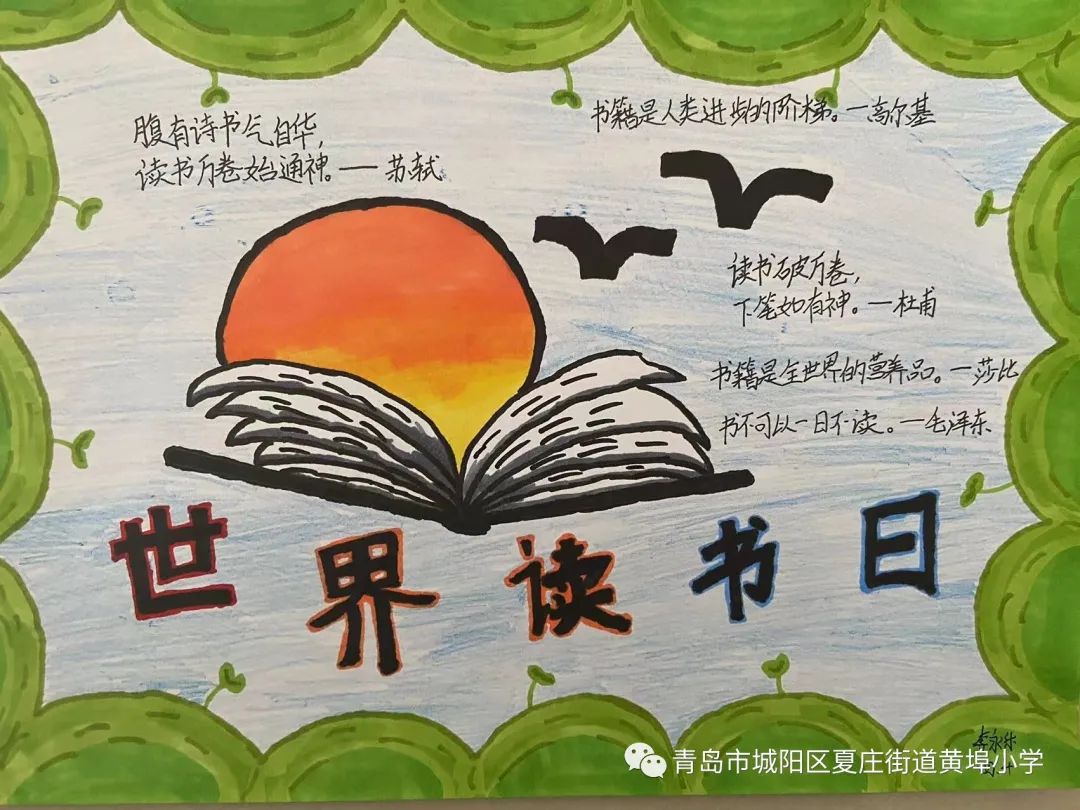 腹有诗书气自华，
读书万卷始通神。——苏轼
书籍是人类进步的阶梯。—高尔基
读书破万卷，
下笔如有神。—杜甫
书籍是全世界的营养品。—莎比
书不可以一日不读。—毛泽东
世界读书日
青岛市城阳区夏庄街道黄埠小学